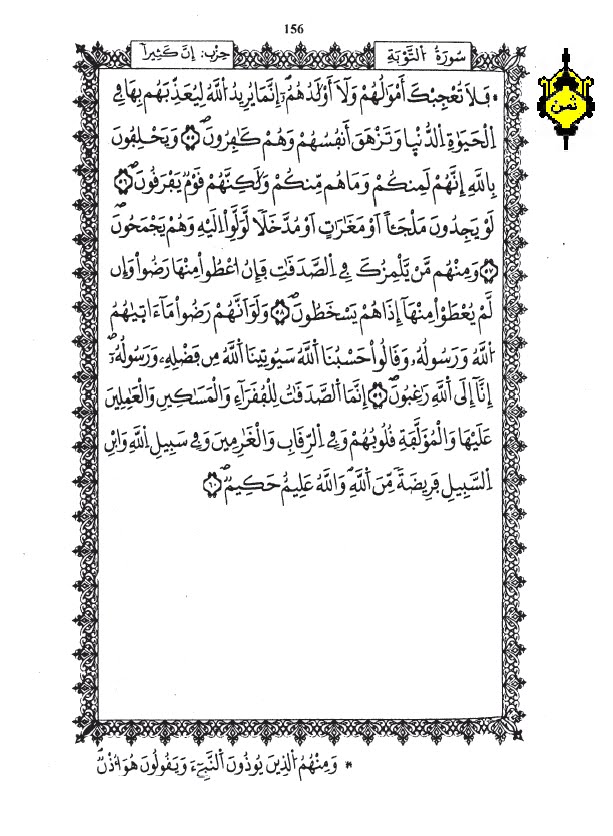 156
سُورَةُ اُلتَّوْبَةِ
حِزْب: إِنَّ كَثِيراٗ
ثمن
* فَلَا تُعْجِبْكَ أَمْوَٰلُهُمْ وَلَآ أَوْلَٰدُهُمُۥٓۖ إِنَّمَا يُرِيدُ اُللَّهُ لِيُعَذِّبَهُم بِهَا فِے
اِلْحَيَوٰةِ اِلدُّنْي۪ا وَتَزْهَقَ أَنفُسُهُمْ وَهُمْ كَٰفِرُونَۖ ٥٥ وَيَحْلِفُونَ
بِاللَّهِ إِنَّهُمْ لَمِنكُمْ وَمَا هُم مِّنكُمْ وَلَٰكِنَّهُمْ قَوْمٞ يَفْرَقُونَۖ ٥٦
لَوْ يَجِدُونَ مَلْجَـٔاً اَوْ مَغَٰرَٰتٍ اَوْ مُدَّخَلاٗ لَّوَلَّوِاْ اِلَيْهِ وَهُمْ يَجْمَحُونَۖ
٥٧ وَمِنْهُم مَّنْ يَّلْمِزُكَ فِے اِلصَّدَقَٰتِ فَإِنُ ا۟عْطُواْ مِنْهَا رَضُواْ وَإِن
لَّمْ يُعْطَوْاْ مِنْهَآ إِذَا هُمْ يَسْخَطُونَۖ ٥٨ وَلَوَ اَنَّهُمْ رَضُواْ مَآ ءَات۪يٰهُمُ
اُللَّهُ وَرَسُولُهُۥ وَقَالُواْ حَسْبُنَا اَللَّهُ سَيُوتِينَا اَللَّهُ مِن فَضْلِهِۦ وَرَسُولُهُۥٓۖ
إِنَّآ إِلَى اَللَّهِ رَٰغِبُونَۖ ٥٩ إِنَّمَا اَلصَّدَقَٰتُ لِلْفُقَرَآءِ وَالْمَسَٰكِينِ وَالْعَٰمِلِينَ
عَلَيْهَا وَالْمُؤَلَّفَةِ قُلُوبُهُمْ وَفِے اِلرِّقَابِ وَالْغَٰرِمِينَ وَفِے سَبِيلِ اِللَّهِ وَابْنِ
اِلسَّبِيلِ فَرِيضَةٗ مِّنَ اَللَّهِۖ وَاللَّهُ عَلِيمٌ حَكِيمٞۖ ٦٠
* وَمِنْهُمُ اُلذِينَ يُوذُونَ اَلنَّبِےٓءَ وَيَقُولُونَ هُوَ أُذْنٞۖ